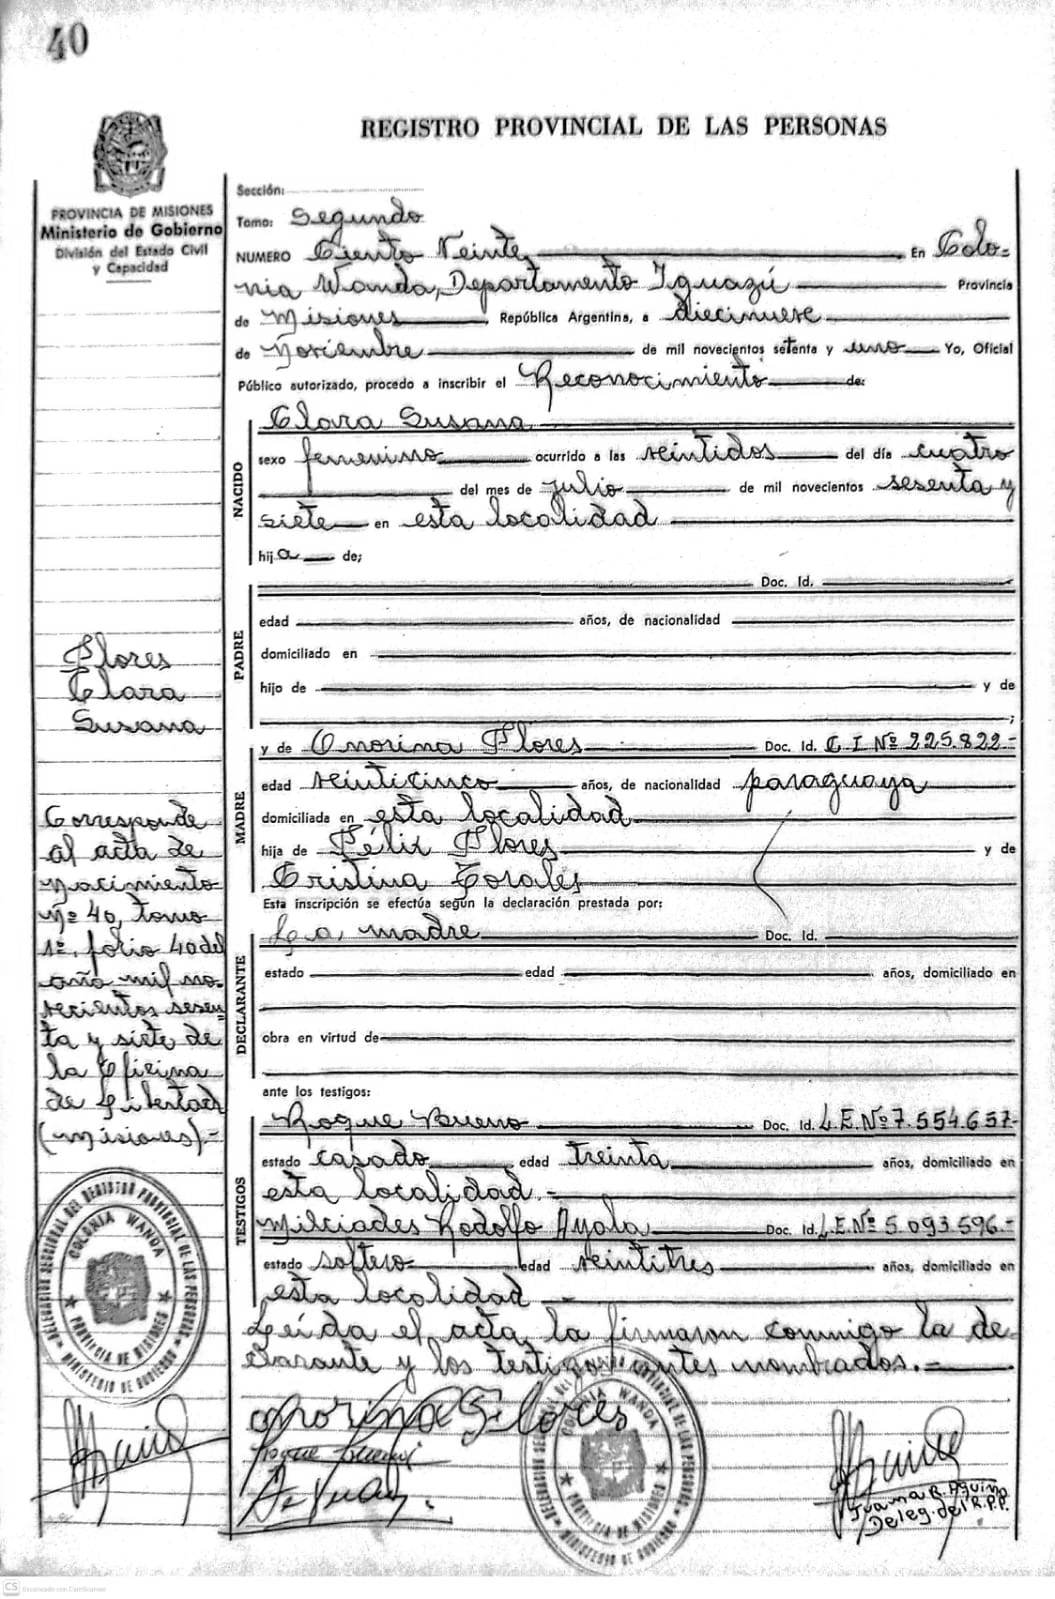 40
REGISTRO PROVINCIAL DE LAS PERSONAS
PROVINCIA DE MISIONES
Ministerio de Gobierno
División del Estado Civil
y Capacidad
Sección:
Tomo: Segundo
NUMERO Ciento Veinte En Colo-
nia Wanda, Departamento Iguazú Provincia
de Misiones República Argentina, a diecinueve
de Noviembre de mil novecientos setenta y uno Yo, Oficial
Público autorizado, procedo a inscribir el Reconocimiento de:
NACIDO
Clara Susana
sexo femenino ocurrido a las veintidos del día cuatro
del mes de julio de mil novecientos sesenta y
siete en esta localidad
hija de;
PADRE
Doc. Id.
edad años, de nacionalidad
domiciliado en
hijo de y de
;
MADRE
y de Onorina Flores Doc. Id. C.I Nº 225.822.-
edad veinticinco años, de nacionalidad paraguaya
domiciliada en esta localidad
hija de Félix Flores y de
Cristina Torales
Esta inscripción se efectúa según la declaración prestada por:
DECLARANTE
La madre Doc. Id.
estado edad años, domiciliado en
obra en virtud de
ante los testigos:
TESTIGOS
Roque Bueno Doc. Id. L.E.Nº 7.554.657-
estado casado edad treinta años, domiciliado en
esta localidad.-
Milciades Rodolfo Ayala Doc. Id. L.E.Nº 5.093.596.-
estado soltero edad veintitres años, domiciliado en
esta localidad
Leída el acta, la firmaron conmigo la de-
clarante y los testigos antes nombrados.-
Onorina Flores
Juana R. Aquino
Deleg. del R.P.P.
Flores
Clara
Susana
Corresponde
al acta de
Nacimiento
Nº 40, tomo
1º, folio 40 del
año mil no-
vecientos sesen-
ta y siete de
la Oficina
de Libertad
(Misiones).-
DELEGACION SECCIONAL DEL REGISTRO PROVINCIAL DE LAS PERSONAS
COLONIA WANDA
PROVINCIA DE MISIONES
MINISTERIO DE GOBIERNO
COLONIA WANDA
PROVINCIA DE MISIONES
MINISTERIO DE GOBIERNO
CS Escaneado con CamScanner